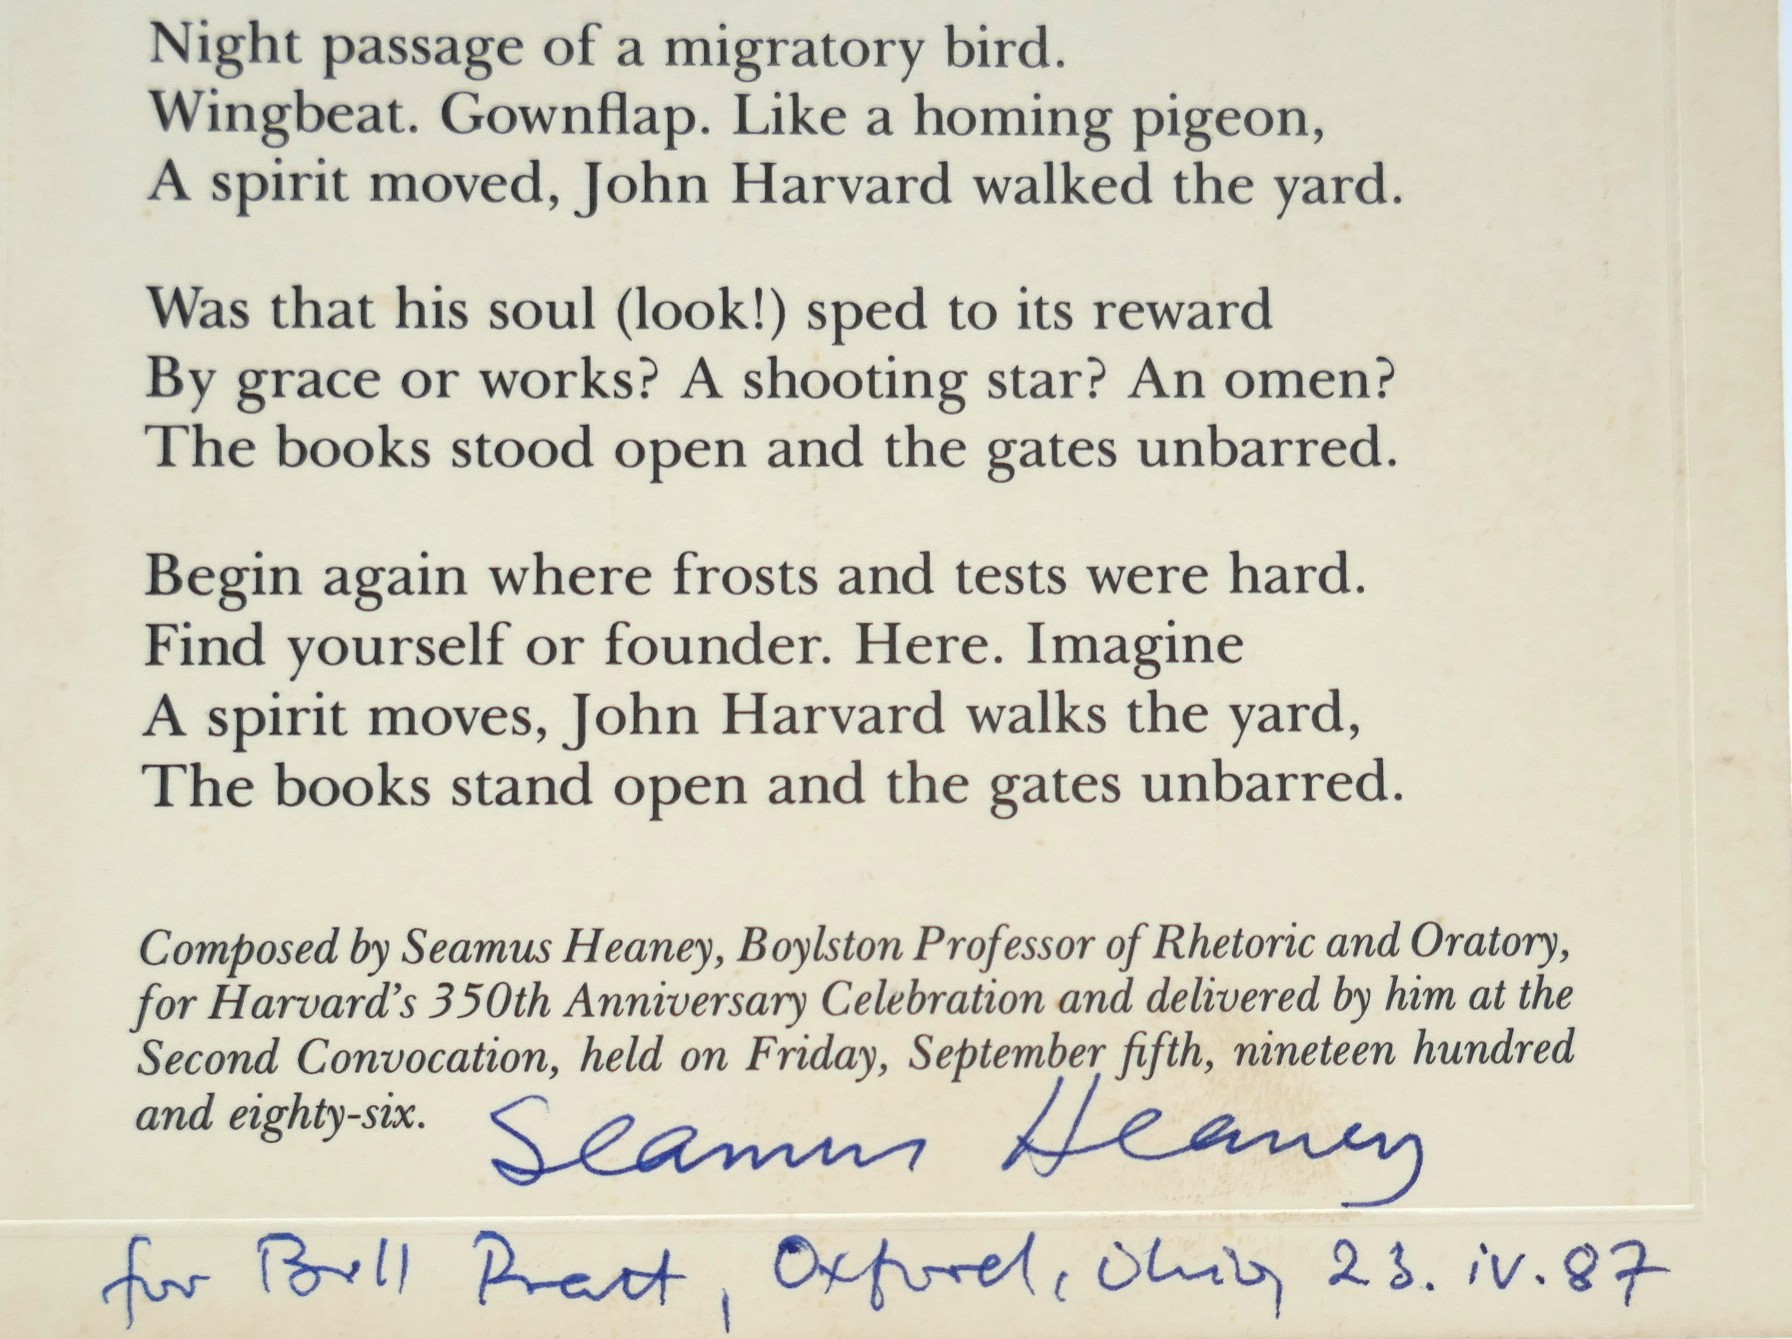 Night passage of a migratory bird.
Wingbeat. Gownflap. Like a homing pigeon,
A spirit moved, John Harvard walked the yard.
Was that his soul (look!) sped to its reward
By grace or works? A shooting star? An omen?
The books stood open and the gates unbarred.
Begin again where frosts and tests were hard.
Find yourself or founder. Here. Imagine
A spirit moves, John Harvard walks the yard,
The books stand open and the gates unbarred.
Composed by Seamus Heaney, Boylston Professor of Rhetoric and Oratory,
for Harvard's 350th Anniversary Celebration and delivered by him at the
Second Convocation, held on Friday, September fifth, nineteen hundred
and eighty-six.
Seamus Heaney
for Bill Pratt, Oxford, Ohio, 23. iv. 87